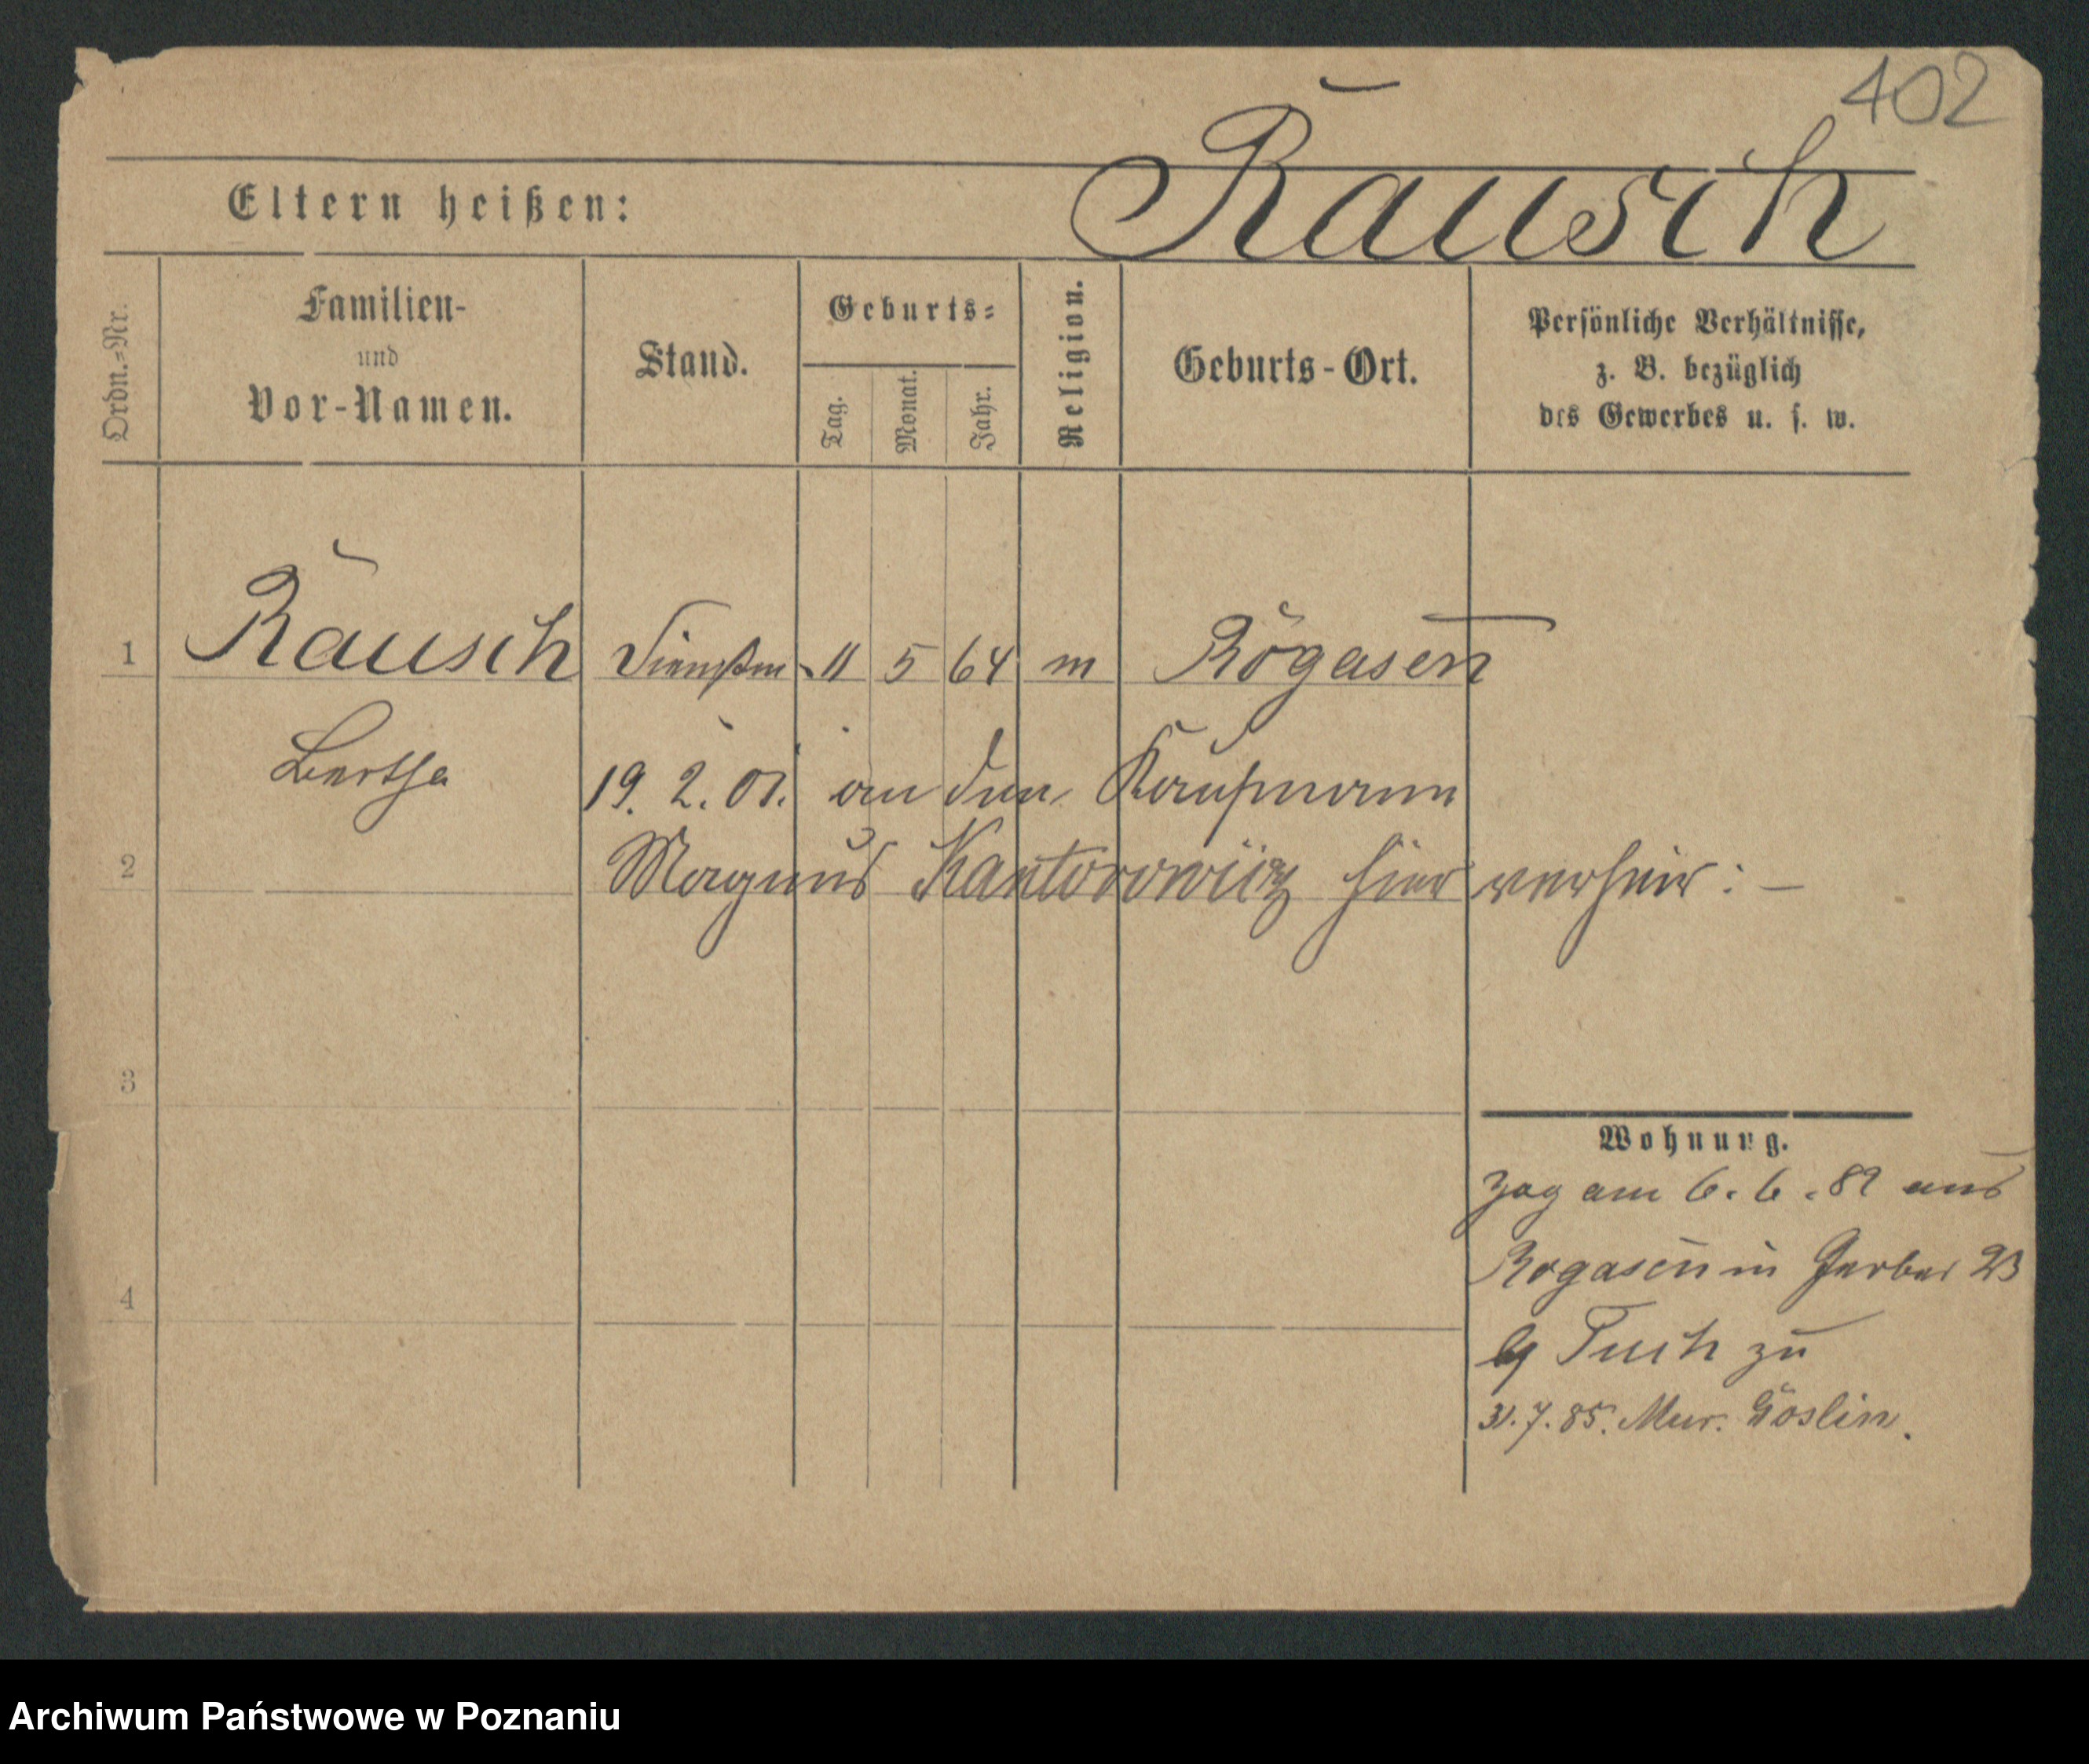 402
Rausch
Eltern heißen:
Ordn.=Nr.
Familien-
und
Vor-Namen.
Stand.
Geburts=
Tag.
Monat.
Jahr.
Religion.
Geburts-Ort.
Persönliche Verhältnisse,
z. B. bezüglich
des Gewerbes u. s. w.
1 Rausch Dienstm. 11 5 64 m Rogasen
Bertha
19. 2. 01. an den Kaufmann
2 Magnus Kantorowicz hier verheir: —
3
4
Wohnung.
Zog am 6. 6. 82 aus
Rogasen in Gerber 23
Tuch zu
31. 7. 85. Mur. Goslin.
Archiwum Państwowe w Poznaniu